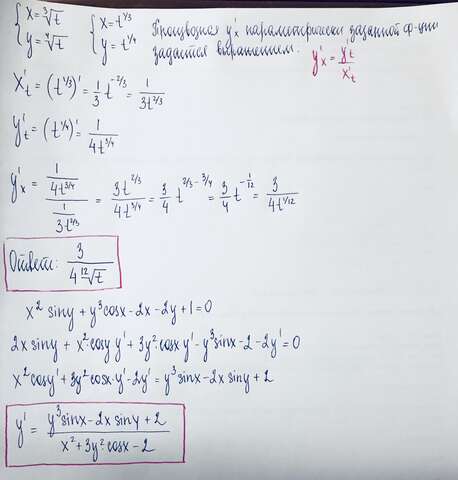 { x = ∛t  { x = t^{1/3}  Производная y'x параметрически заданной ф-ции
{ y = ∜t  { y = t^{1/4}  задается выражением: y'x = y't / x't
x't = (t^{1/3})' = 1/3 t^{-2/3} = 1 / 3t^{2/3}
y't = (t^{1/4})' = 1 / 4t^{3/4}
y'x = (1 / 4t^{3/4}) / (1 / 3t^{2/3}) = 3t^{2/3} / 4t^{3/4} = 3/4 t^{2/3 - 3/4} = 3/4 t^{-1/12} = 3 / 4t^{1/12}
Ответ: 3 / 4 ¹²√t
x² siny + y³cosx - 2x - 2y + 1 = 0
2x siny + x²·cosy y' + 3y²·cosx y' - y³sinx - 2 - 2y' = 0
x²cosy' + 3y²cosx·y' - 2y' = y³sinx - 2x siny + 2
y' = (y³sinx - 2x siny + 2) / (x² + 3y²·cosx - 2)